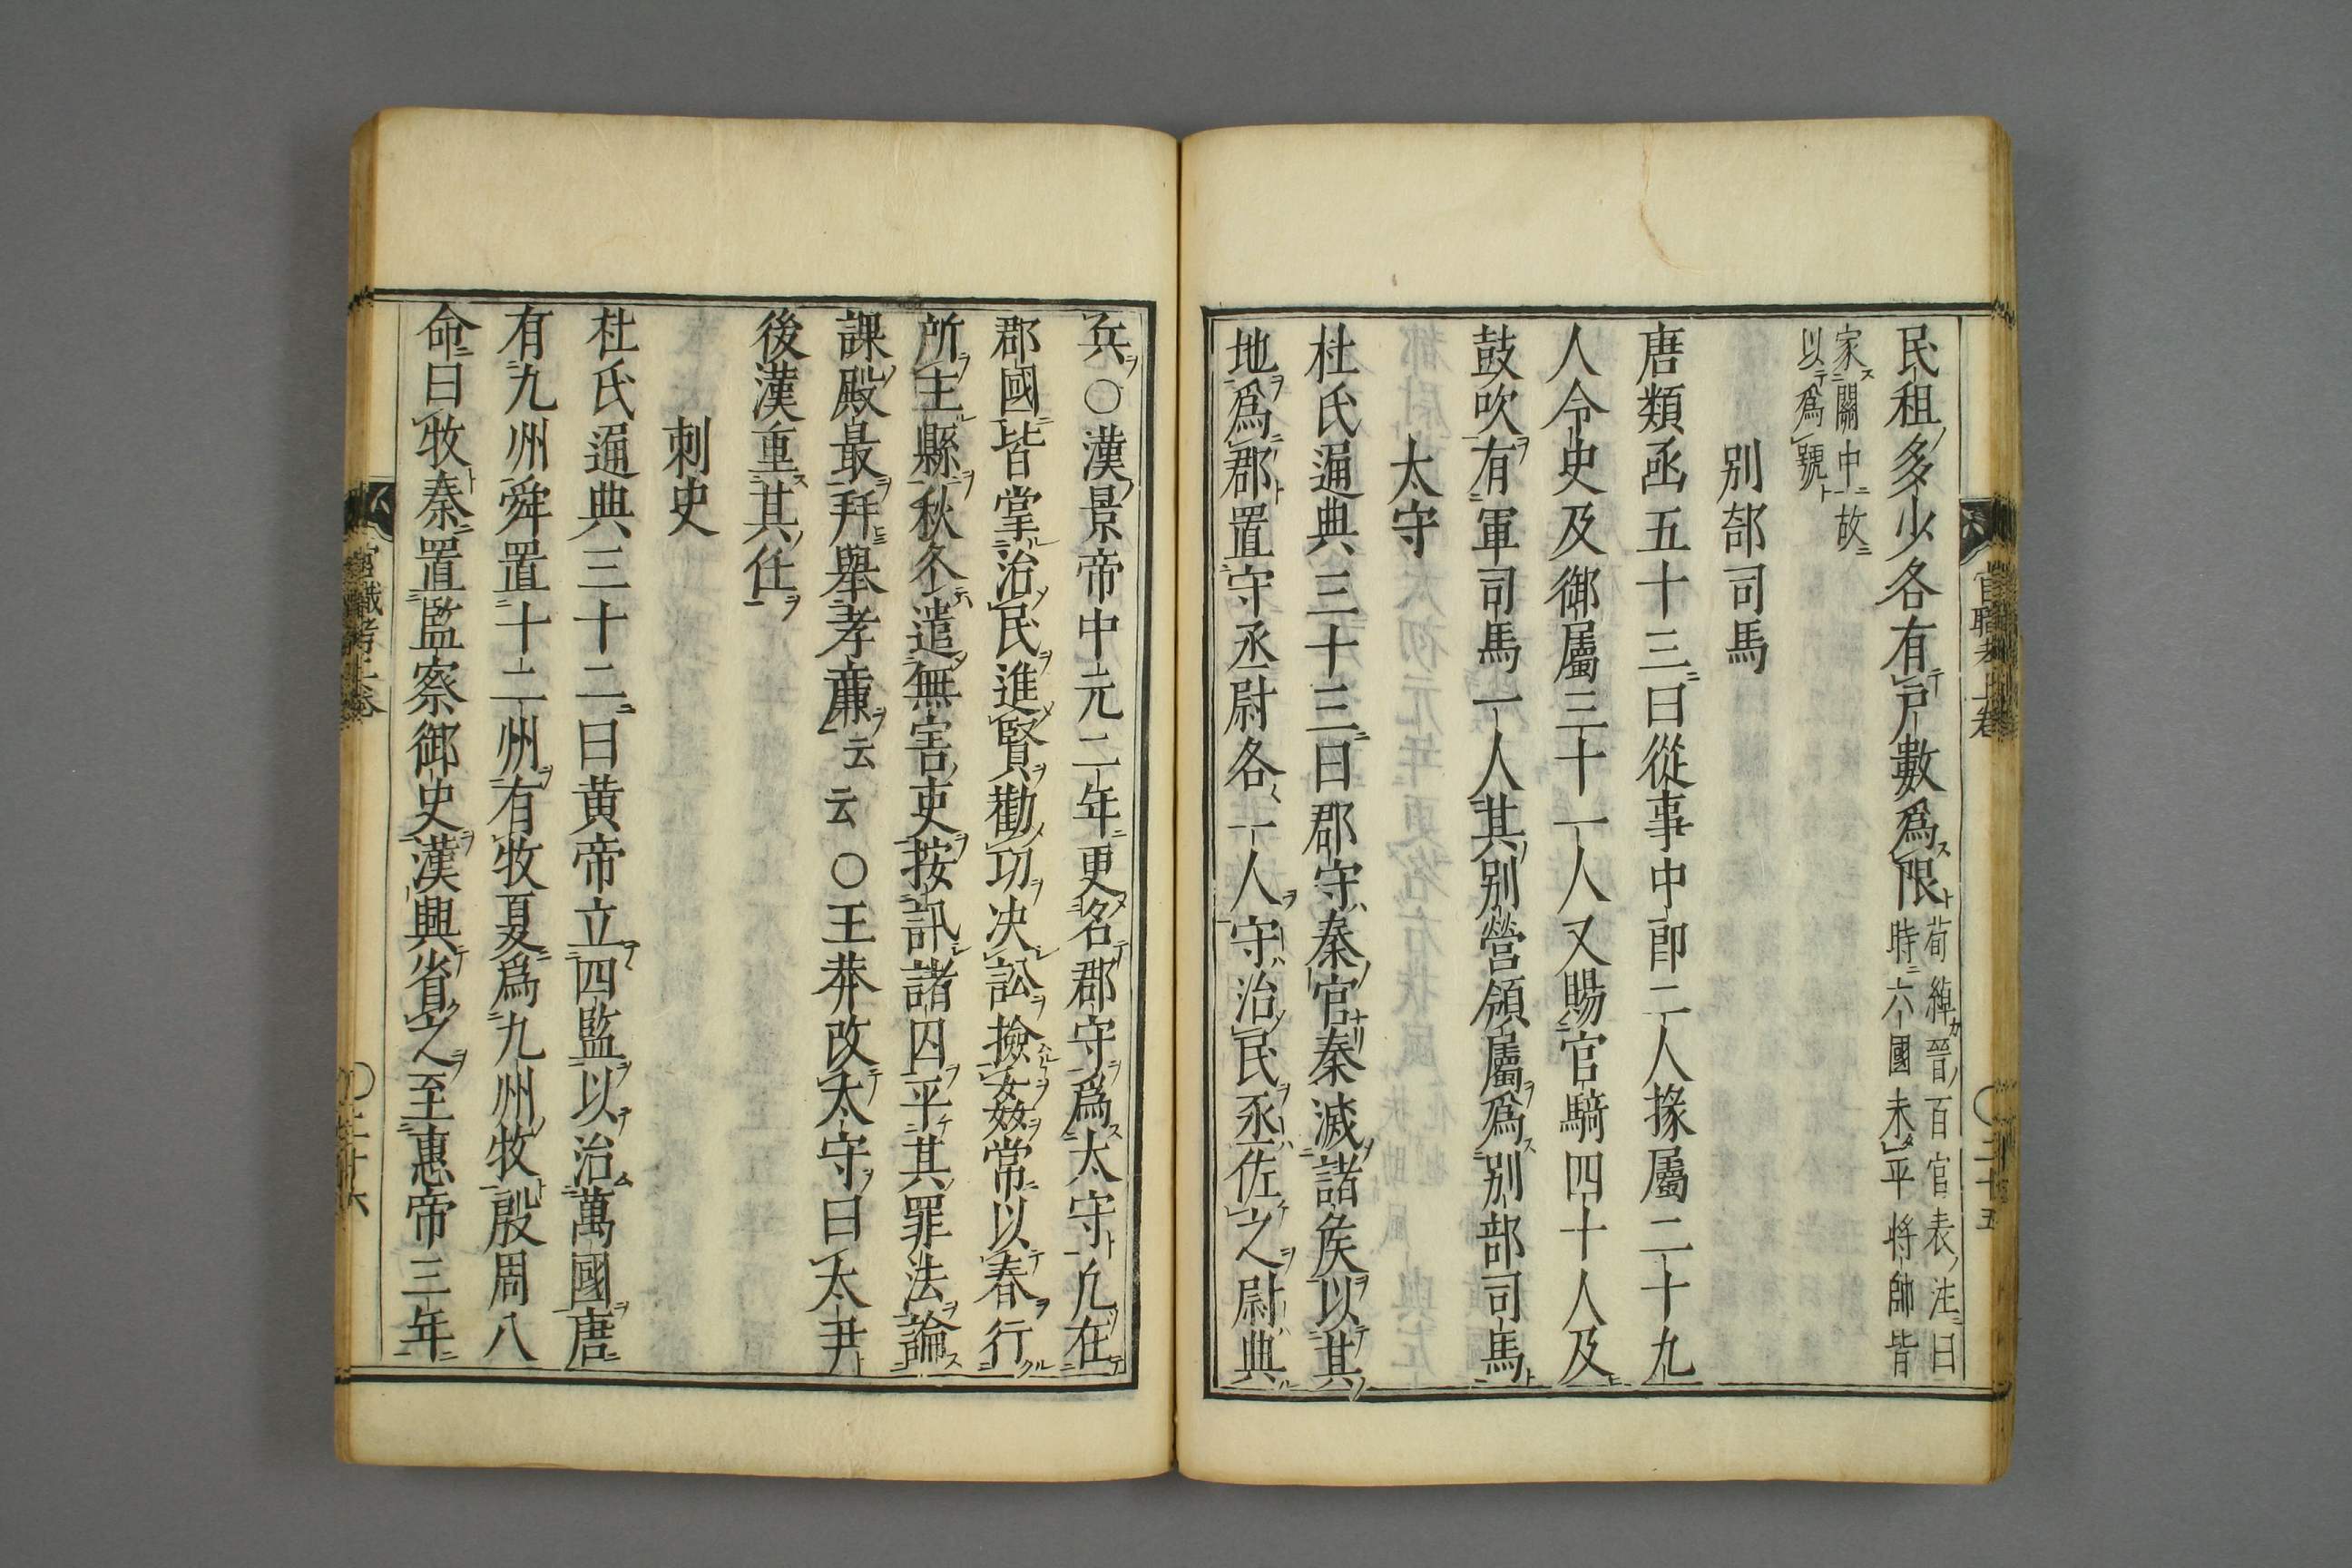 民租多少各有戸數爲限荀綽晉百官表注曰
時六國未平將帥皆
家關中故
以爲號
別部司馬
唐類函五十三曰從事中郎二人掾屬二十九
人令史及御屬三十一人又賜官騎四十人及
鼓吹有軍司馬一人其別營領屬爲別部司馬
太守
杜氏通典三十三曰郡守秦官秦滅諸矦以其
地爲郡置守丞尉各一人守治民丞佐之尉典
官職考上卷
〇二十五
兵〇漢景帝中元二年更名郡守爲太守凢在
郡國皆掌治民進賢勸功决訟撿姦常以春行
所主縣秋冬遣無害吏按訊諸囚平其罪法論
課殿最拜舉孝廉云云〇王莽改太守曰太尹
後漢重其任
刺史
杜氏通典三十二曰黄帝立四監以治萬國唐
有九州舜置十二州有牧夏爲九州牧殷周八
命曰牧秦置監察御史漢興省之至惠帝三年
官職考上卷
〇二十六